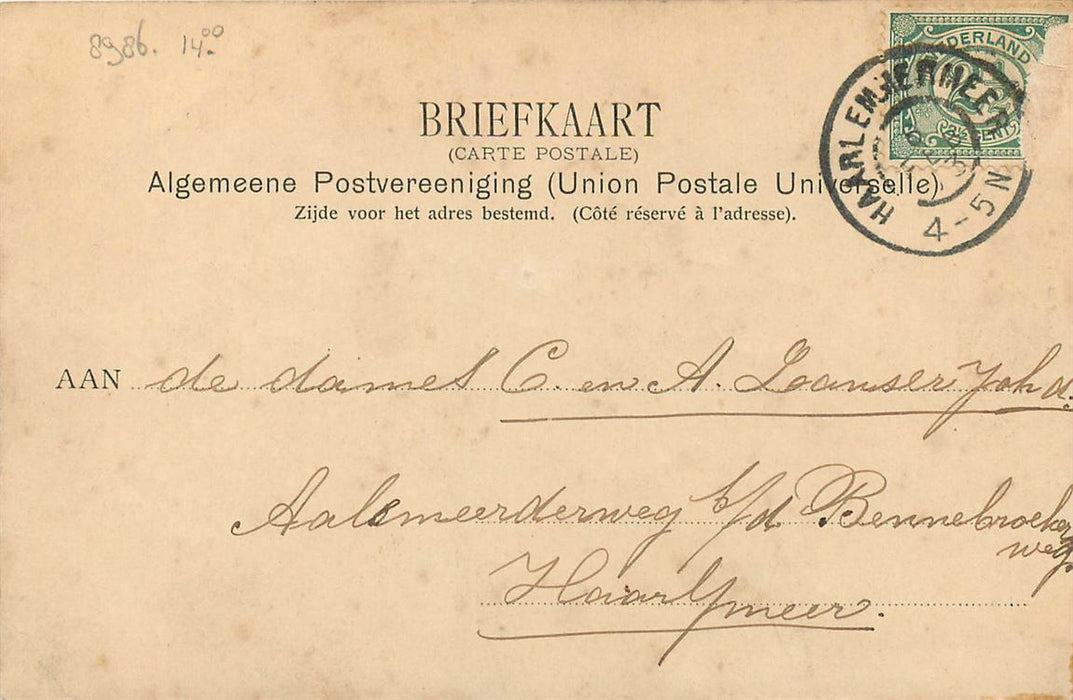 8986. 14.00
NEDERLAND
2½ CENT
HAARLEMMERMEER
4-5N
BRIEFKAART
(CARTE POSTALE)
Algemeene Postvereeniging (Union Postale Universelle)
Zijde voor het adres bestemd. (Côté réservé à l'adresse).
AAN de dames C. en A. Lanser Johd.
Aalsmeerderweg b/d Bennebroeker
weg
Haarlmeer.